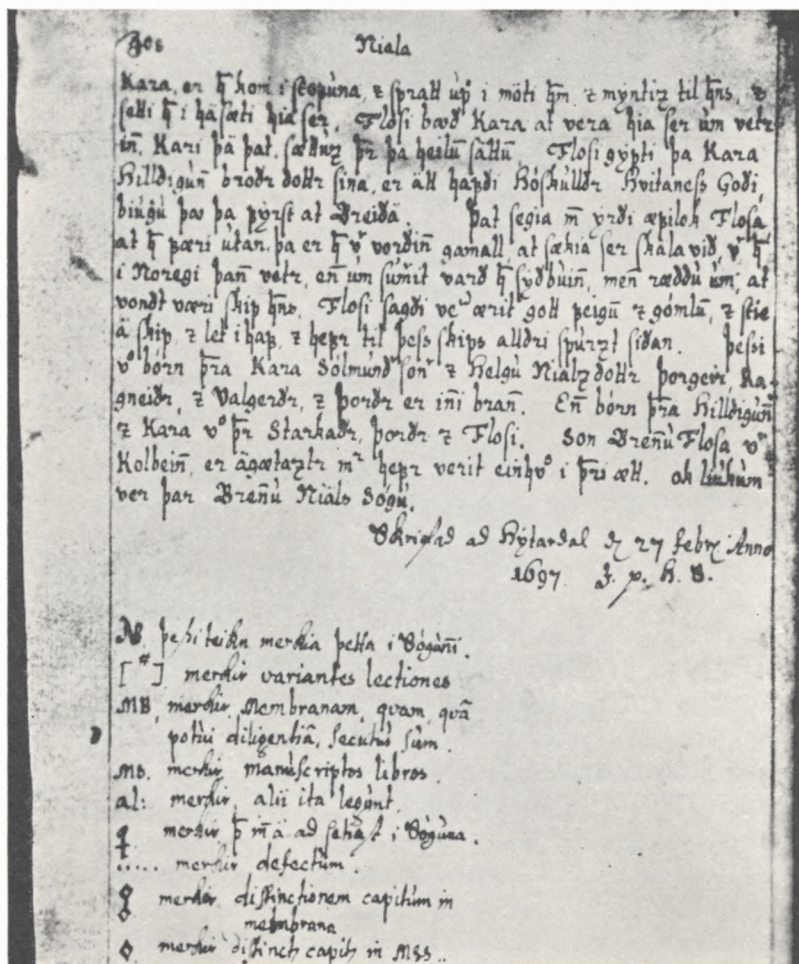 408 Niala
Kara, er h̄ kom i stopuna, ⁊ spratt up i móti h̄m ⁊ myntiz til h̄ns, ⁊
setti h̄ i hä sæti hia ser. Flosi bauð Kara at vera hia ser úm vetr
in̄. Kari þä þat, sættuz þr̄ þa heilū sättū. Flosi gypti þa Kara
Hilldigun̄ broðr dottr sina, er ätt hapði Höskulldr Hvitaness Goði,
biuggu þau þa pyrst at Breiða. Þat segia m̄ yrði æpilok Flosa
at h̄ pæri útan, þa er h̄ vͬ vorðin̄ gamall, at sækia ser skala við, vͬ h̄
i Noregi þan̄ vetr, en̄ úm sum̄it varð h̄ syðbuin̄, men̄ ræddu úm, at
vondt væri skip h̄ns. Flosi sagði veͬ ærit gott peigū ⁊ gómlū, ⁊ stie
ä skip, ⁊ let i hap, ⁊ hepr til þess skips alldri spurzt siðan. Þessi
vͦ bórn þr̄a Kara Sólmundͬ son̄ ⁊ Helgu Nialz dottr Þorgerðr, Ra-
gneiðr, ⁊ Valgerðr, ⁊ Þorðr er in̄i bran̄. En̄ bórn þr̄a Hilldigun̄
⁊ Kara vͦ þr̄ Starkaðr, Þorðr ⁊ Flosi. Son Bren̄u Flosa vͬ
Kolbein̄, er ägætaztr mͬ hepr verit einhvͦ i þr̄i ætt. ok liukum
ver þar Bren̄u Niäls Sógu.
Skrifad ad Hýtardal 27 febr: Anno
1697. J. p. H. S.
NB. þessi teikn merkia þetta i Sógun̄i.
[#] merkir variantes lectiones
MB. merkir Membranam, qvam, qvā
potui diligentiā, secutus sum.
MS. merkir manuscriptos libros.
al: merkir, alii ita legunt.
merkir þ̄ m̄ ä ad setiast i Sóguna.
..... merkir defectum.
merkir distinctionem capitum in
membrana
merkir distinct capit: in MSS..